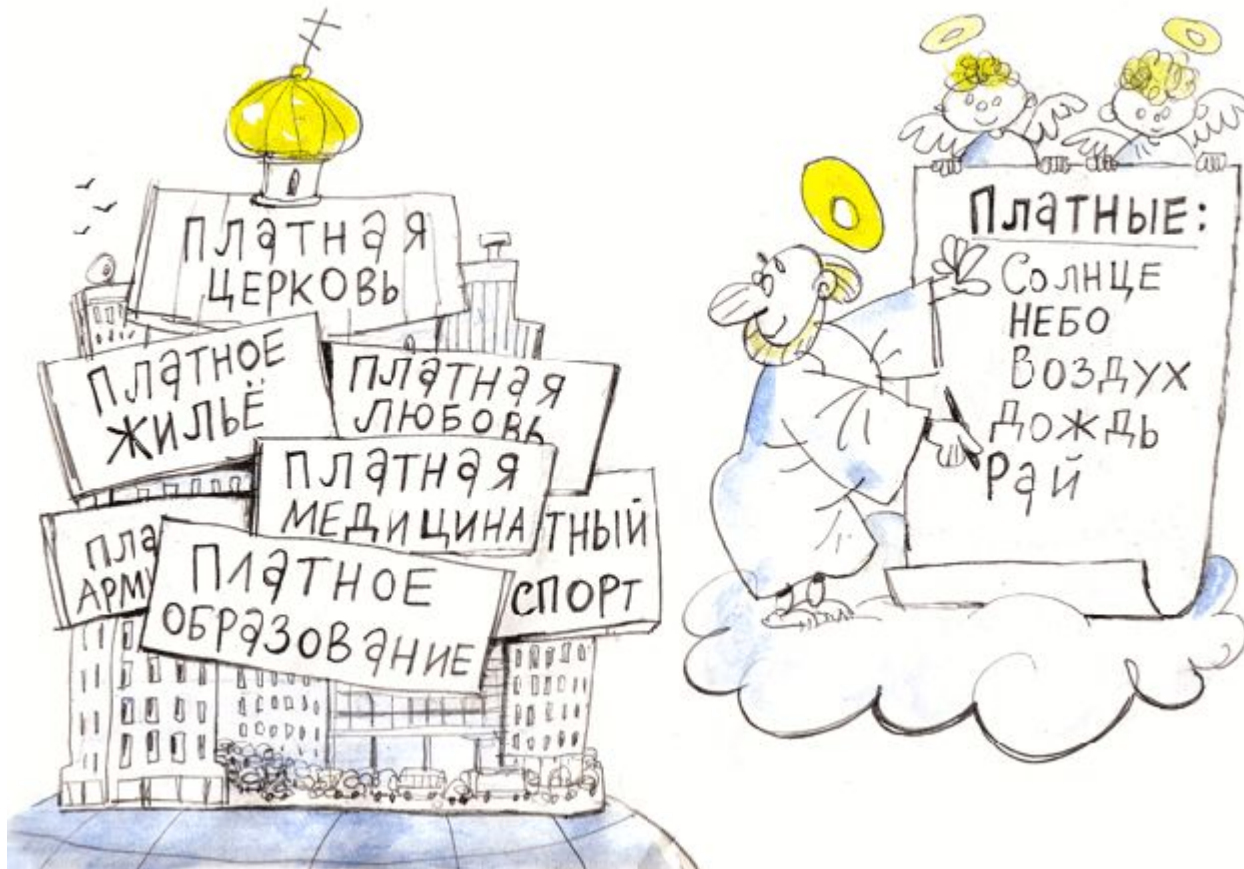 Платная
церковь
Платное
жильё
Платная
любовь
Платная
медицина
Пла
арми
тный
спорт
Платное
образование
Платные:
Солнце
Небо
Воздух
Дождь
Рай